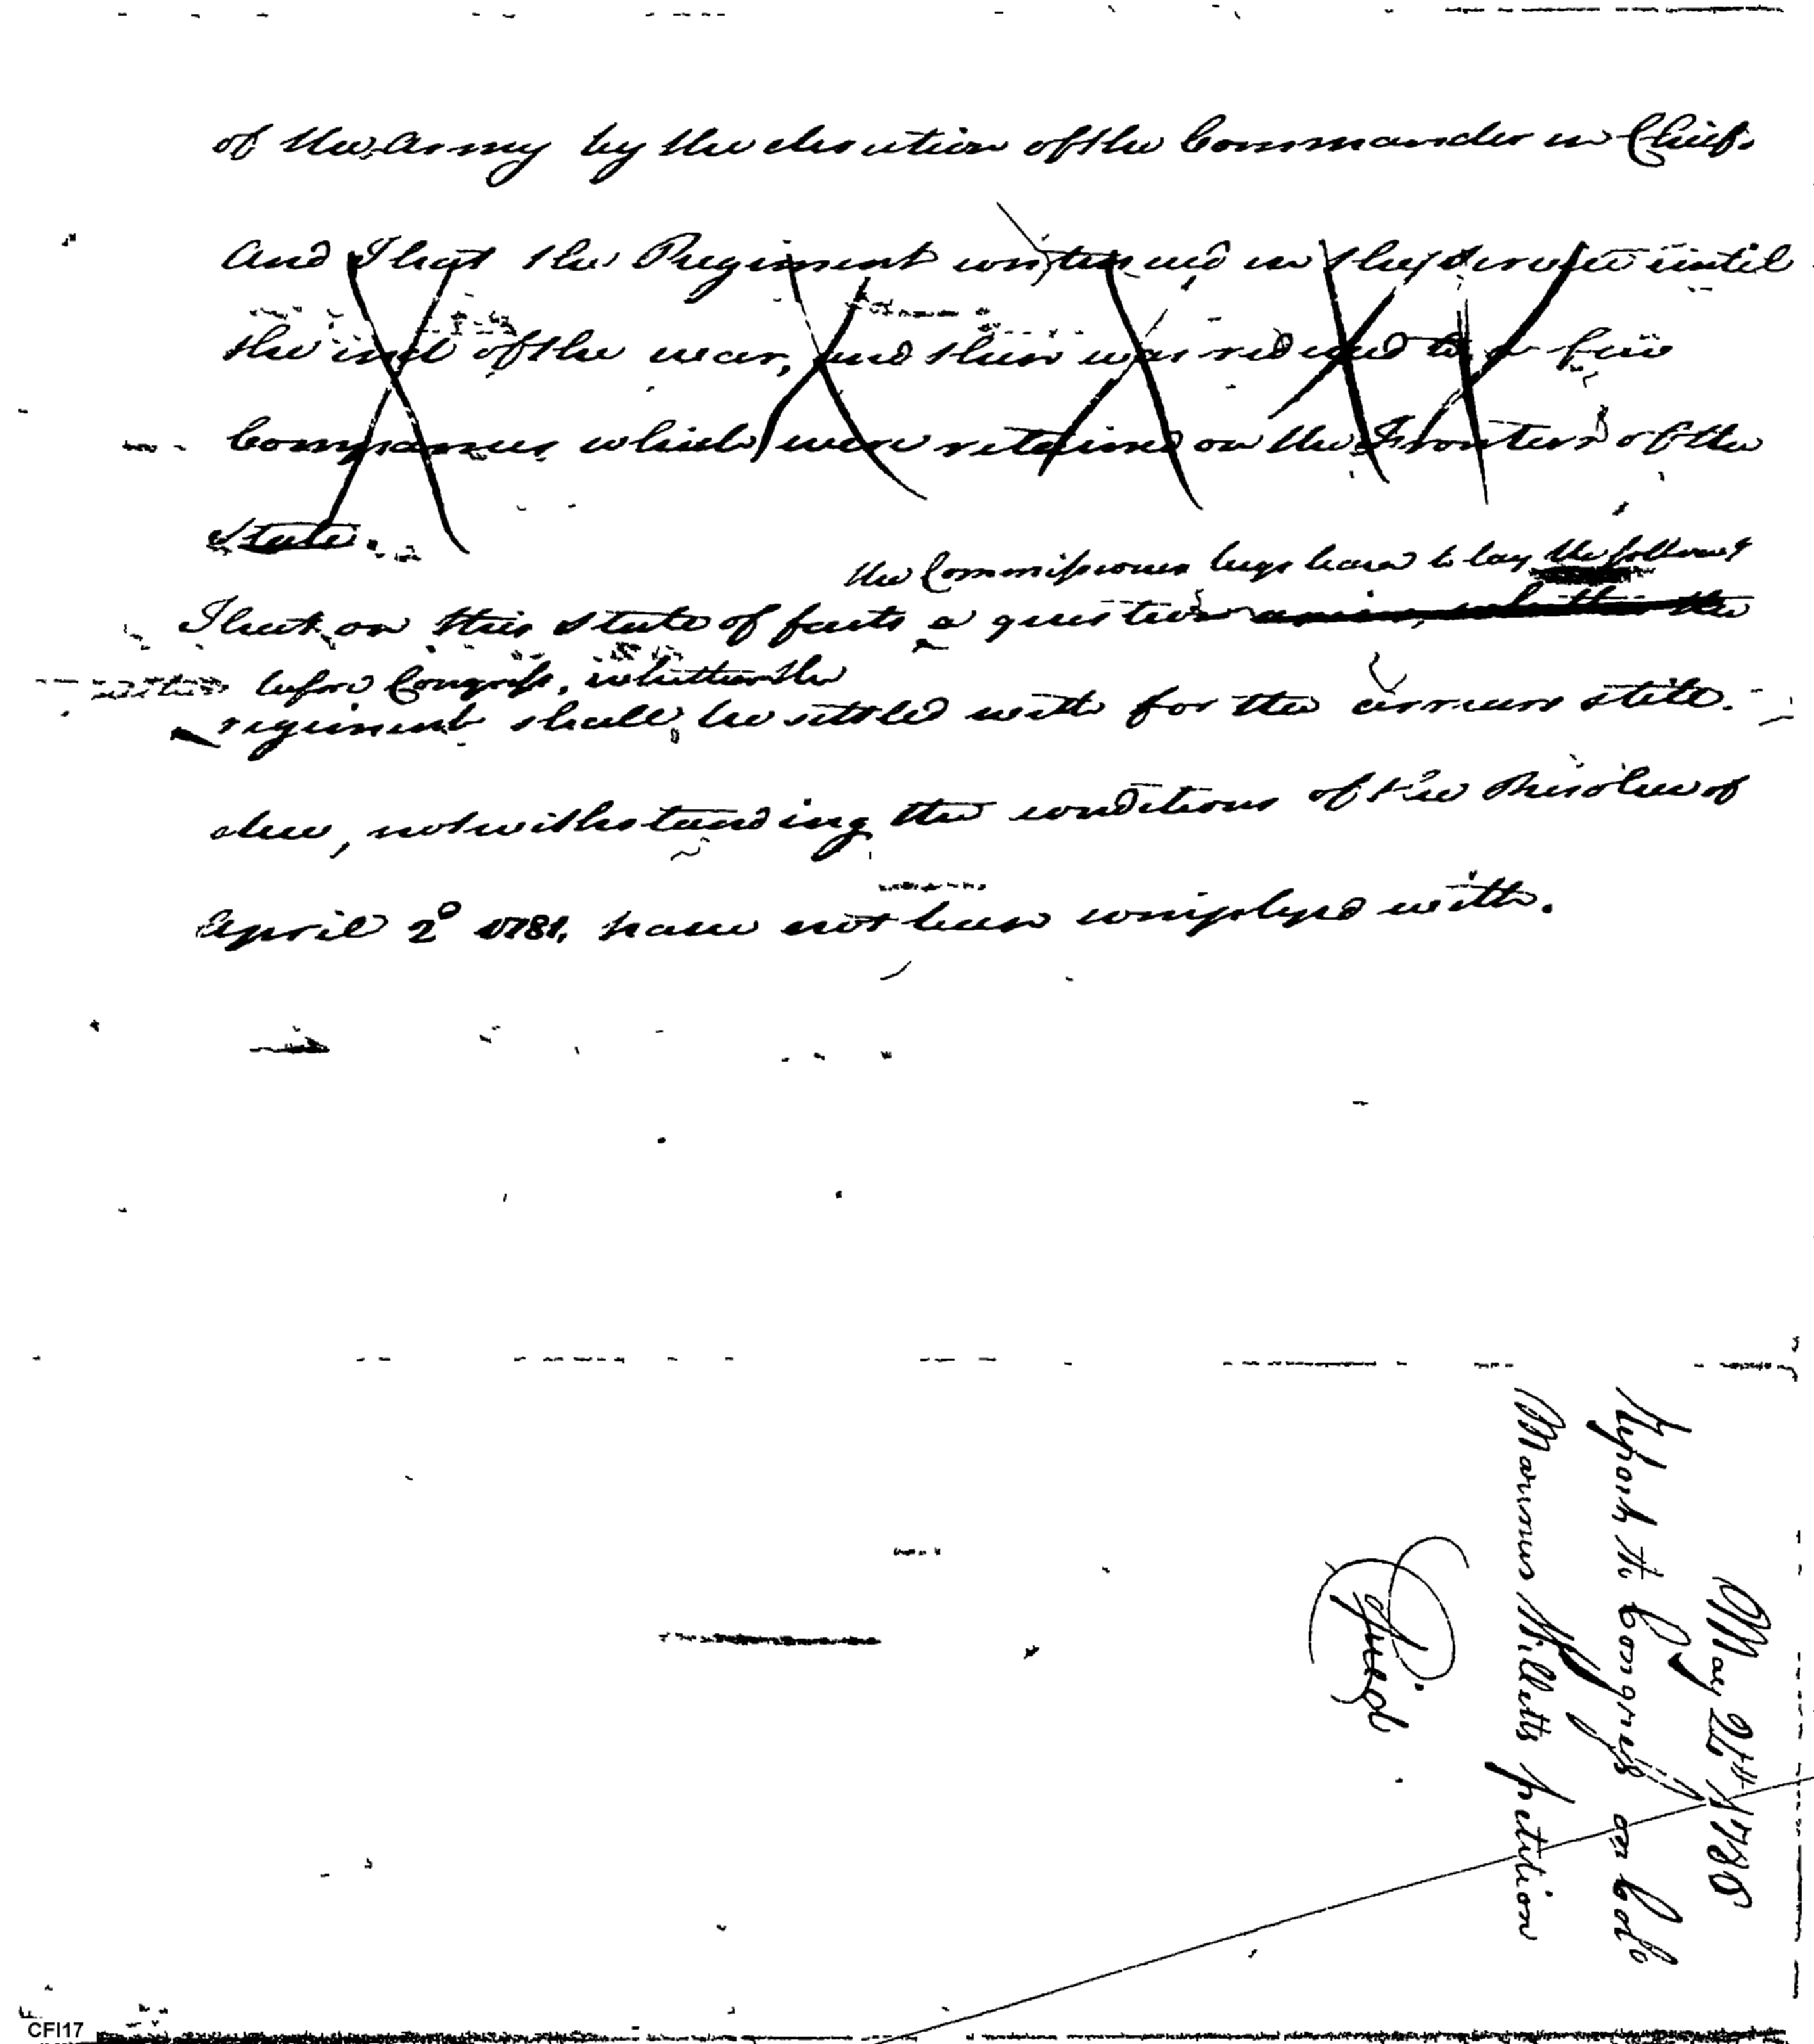 of the Army by the direction of the Commander in Chief.
And That the Regiment continued in the service until
the end of the war, and then was reduced to a few
Companies which were retained on the Frontiers of the
State.
the Commissioner begs leave to lay the following
That on this state of facts a question arises, whether the
before Congress, whether the
regiment shall be settled with for the arrears still
due, notwithstanding the conditions of the Resolve of
April 2d 1781. have not been complyed with.
May 24th 1786
Report to Congress on Colo
Marinus Willetts petition
Copied
CFI17